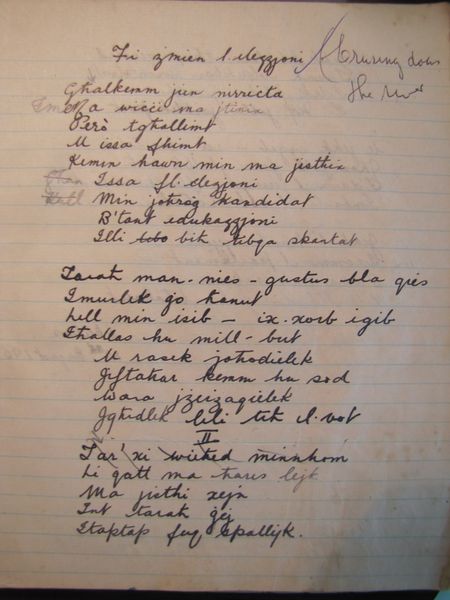 Fi żmien l. elezzjoni (Cruising down
the River
Għalkemm jien nirricta
Ma wicci ma jtinix
Però tgħallimt
U issa fhimt
Kemm hawn min ma jisthix
Issa fl. elezjoni
Min johrog kandidat
B'tant edukazzjoni
Illi bik tibqa skartat
Tarah man. nies - gustus bla qies
Imurlek go hanut
Lell min isib - ix. xorb igib
Ihallas hu mill - but
U rasek johodielek
Jiftahar kemm hu sod
Wara jziezagielek
Jghidlek lili tih il. vot
II
Tar' xi wiehed minnhom
Li qatt ma hares lejk
Ma jisthi xejn
Int tarah gej
Itaptap fuq spallejk.